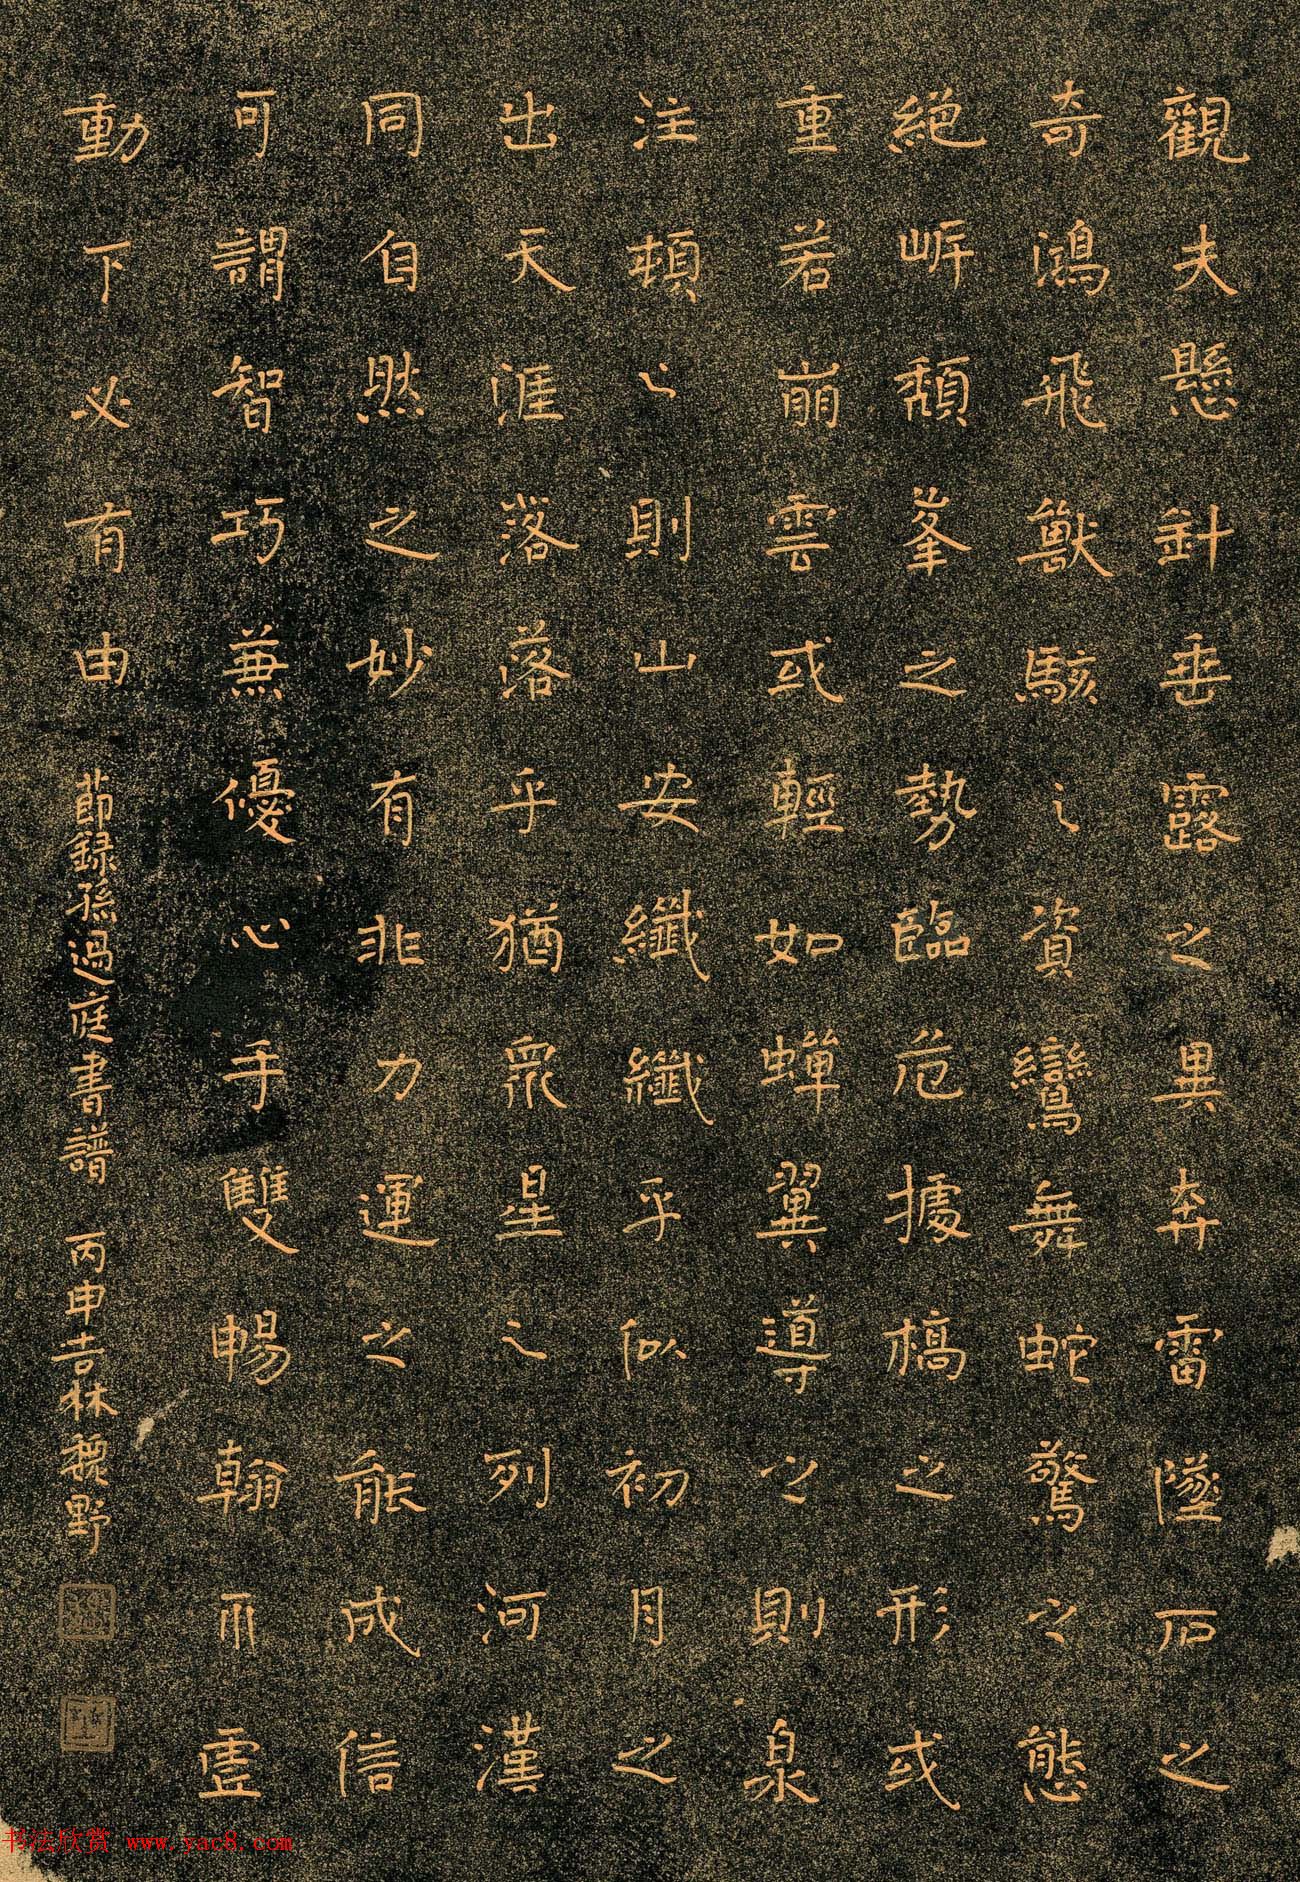 觀夫懸針垂露之異奔雷墜石之
奇鴻飛獸駭之資鸞舞蛇驚之態
絕岸頹峯之勢臨危據槁之形或
重若崩雲或輕如蟬翼導之則泉
注頓〻則山安纖纖乎似初月之
出天涯落落乎猶眾星之列河漢
同自然之妙有非力運之能成信
可謂智巧兼優心手雙暢翰不虛
動下必有由
節錄孫過庭書譜 丙申吉林 野
书法欣赏 www.yac8.com